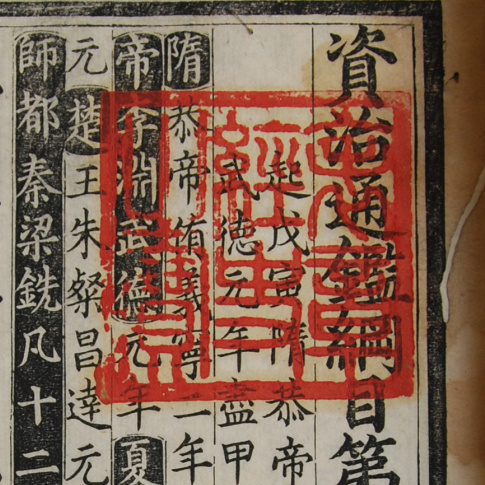 資治通鑑綱目第
起戊寅隋恭帝
武德元年盡甲
隋恭帝侑義寧二年
帝李淵武德元年夏
元楚王朱粲昌達元
師都秦梁銑凡十二